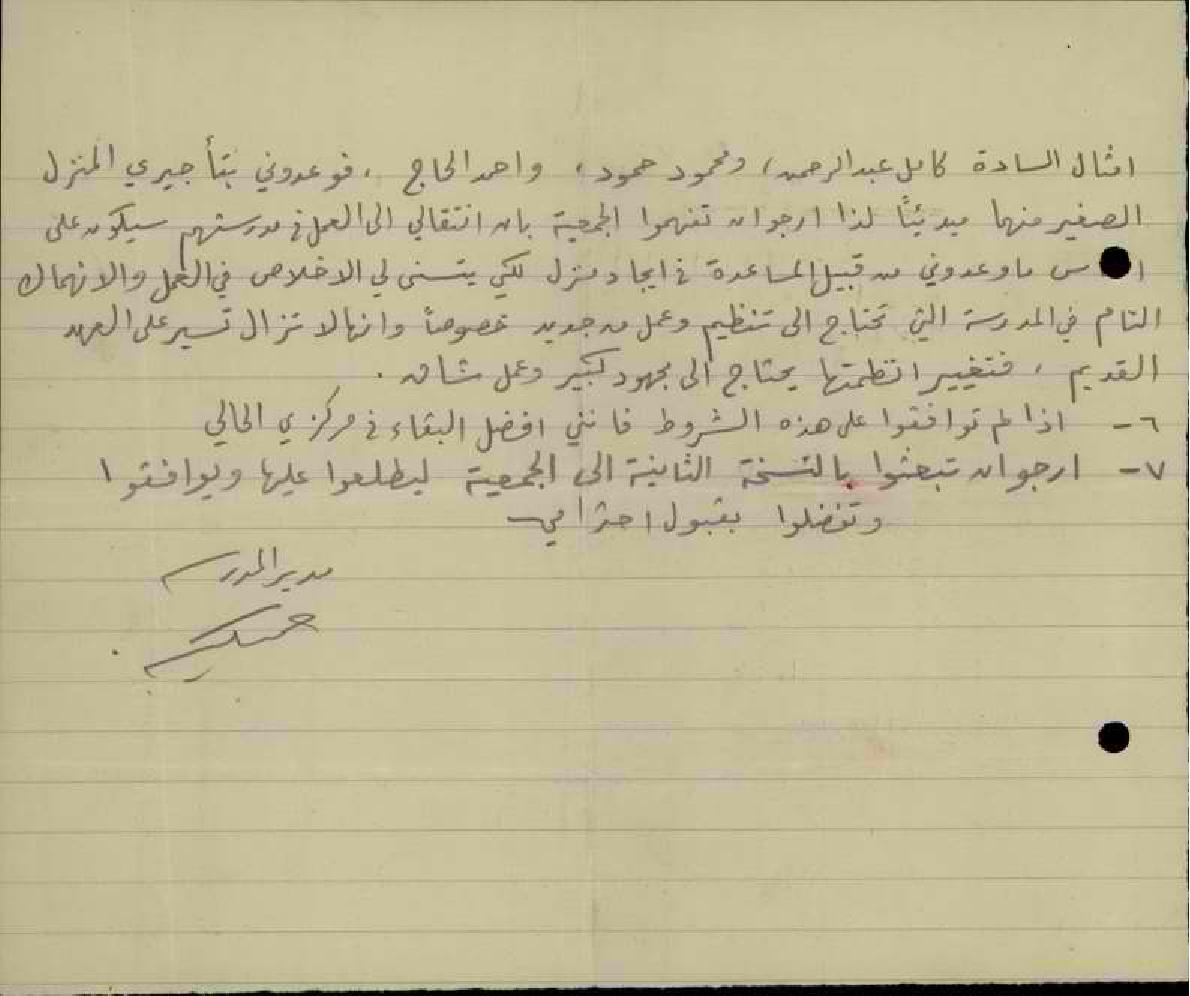 امثال السادة كامل عبدالرحمن، ومحمود حمود، واحمد الحاج، فوعدوني بتأجيري المنزل
الصغير منهما مبدئياً لذا ارجو ان تفهموا الجمعية بان انتقالي الى العمل في مدرستهم سيكون على
ا س ما وعدوني من قبيل المساعدة في ايجاد منزل لكي يتسنى لي الاخلاص في العمل والانهماك
التام في المدرسة التي تحتاج الى تنظيم وعمل من جديد خصوصاً وانها لا تزال تسير على العهد
القديم، فتغيير انظمتها يحتاج الى مجهود كبير وعمل شاق.
٦- اذا لم توافقوا على هذه الشروط فانني افضل البقاء في مركزي الحالي
٧- ارجو ان تبعثوا بالنسخة الثانية الى الجمعية ليطلعوا عليها ويوافقوا
وتفضلوا بقبول احترامي
مدير المدرسة